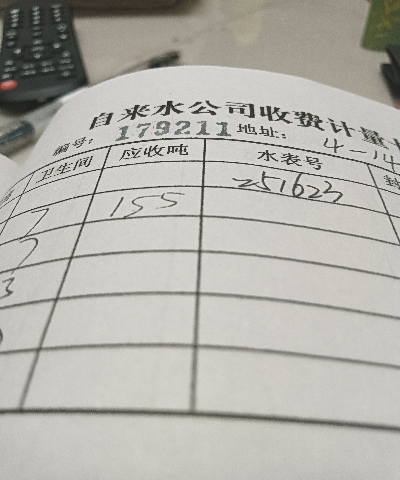 自来水公司收费计量
编号：179211 地址：4-14
卫生间 应收吨 水表号 封
251623
7 155
7
3